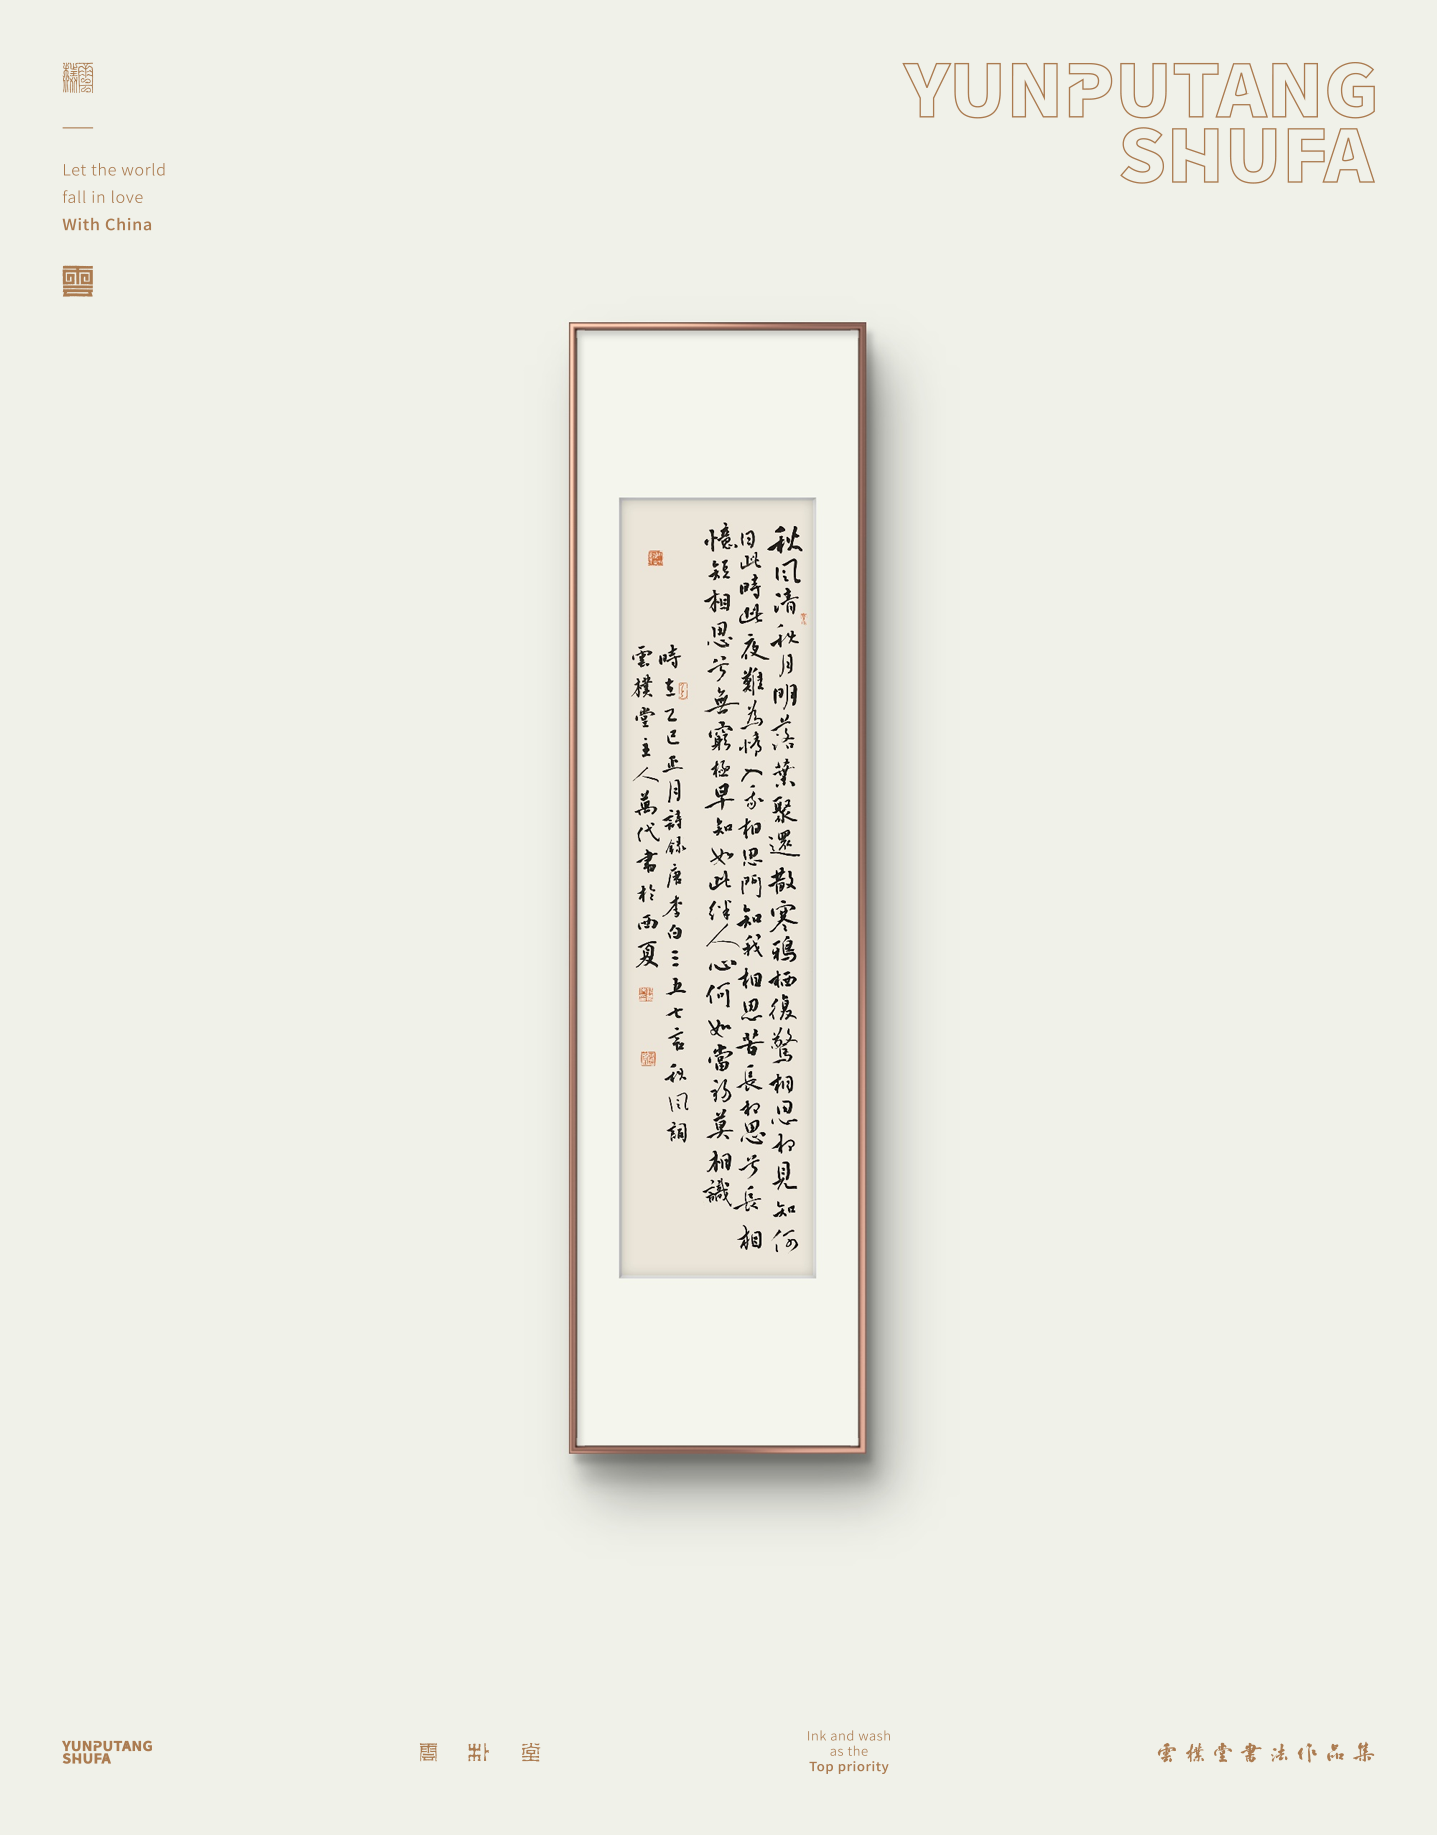 YUNPUTANG
SHUFA
Let the world
fall in love
With China
雲
秋風清秋月明落葉聚還散寒鴉栖復驚相思相見知何
日此時此夜難為情入我相思門知我相思苦長相思兮長相
憶短相思兮無窮極早知如此絆人心何如當初莫相識
時在乙巳正月詩録唐李白三五七言秋風詞
雲樸堂主人萬代書於西夏
YUNPUTANG
SHUFA
雲朴堂
Ink and wash
as the
Top priority
雲樸堂書法作品集